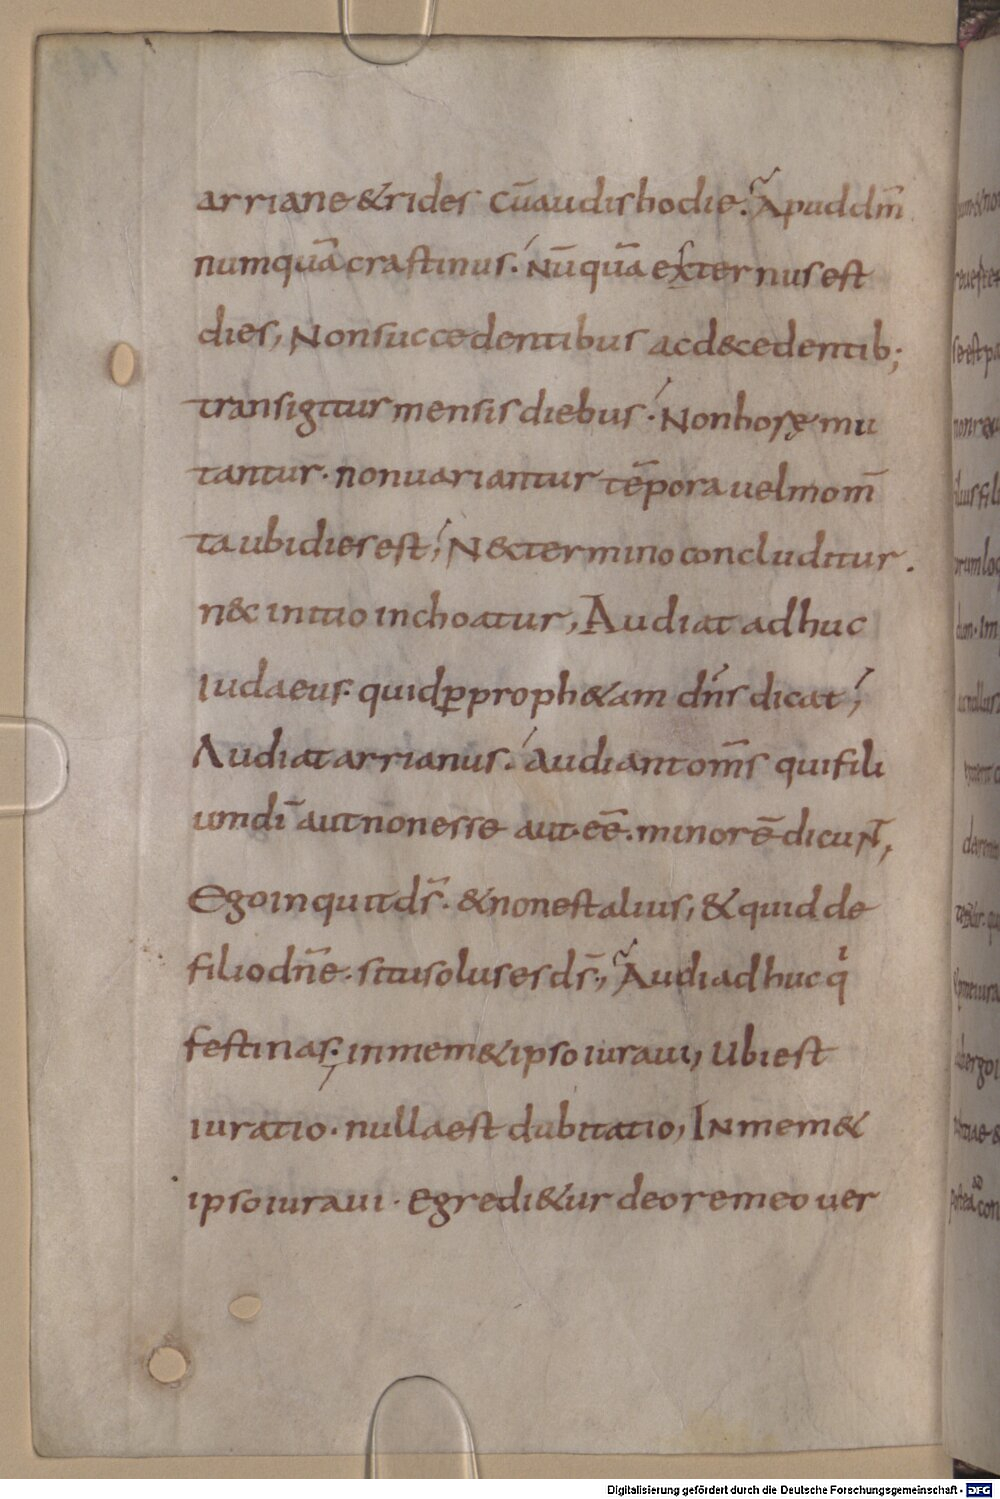 arriane & rides cū audis hodie. Apud dm̄
numquā crastinus. Nūquā externus est
dies, Non succedentibus ac d&cedentib;
transigitur mensis diebus. Non horę mu
tantur. non uariantur tēpora uel mom̄
ta ubi dies est, N& termino concluditur.
nec initio inchoatur, Audiat adhuc
Iudaeus. quid ꝑ proph&am dn̄s dicat,
Audiat arrianus. Audiant om̄s qui fili
um dī aut non esse aut. eē. minorē dicuNT,
Ego inquit ds̄. & non est alius, & quid de
filio dn̄e. si tu solus es ds̄, Audi adhuc q
festinas. in mem& ipso iuraui, Ubi est
iuratio. nulla est dubitatio, In mem&
ipso iuraui. Egredi&ur de ore meo uer
Digitalisierung gefördert durch die Deutsche Forschungsgemeinschaft - DFG